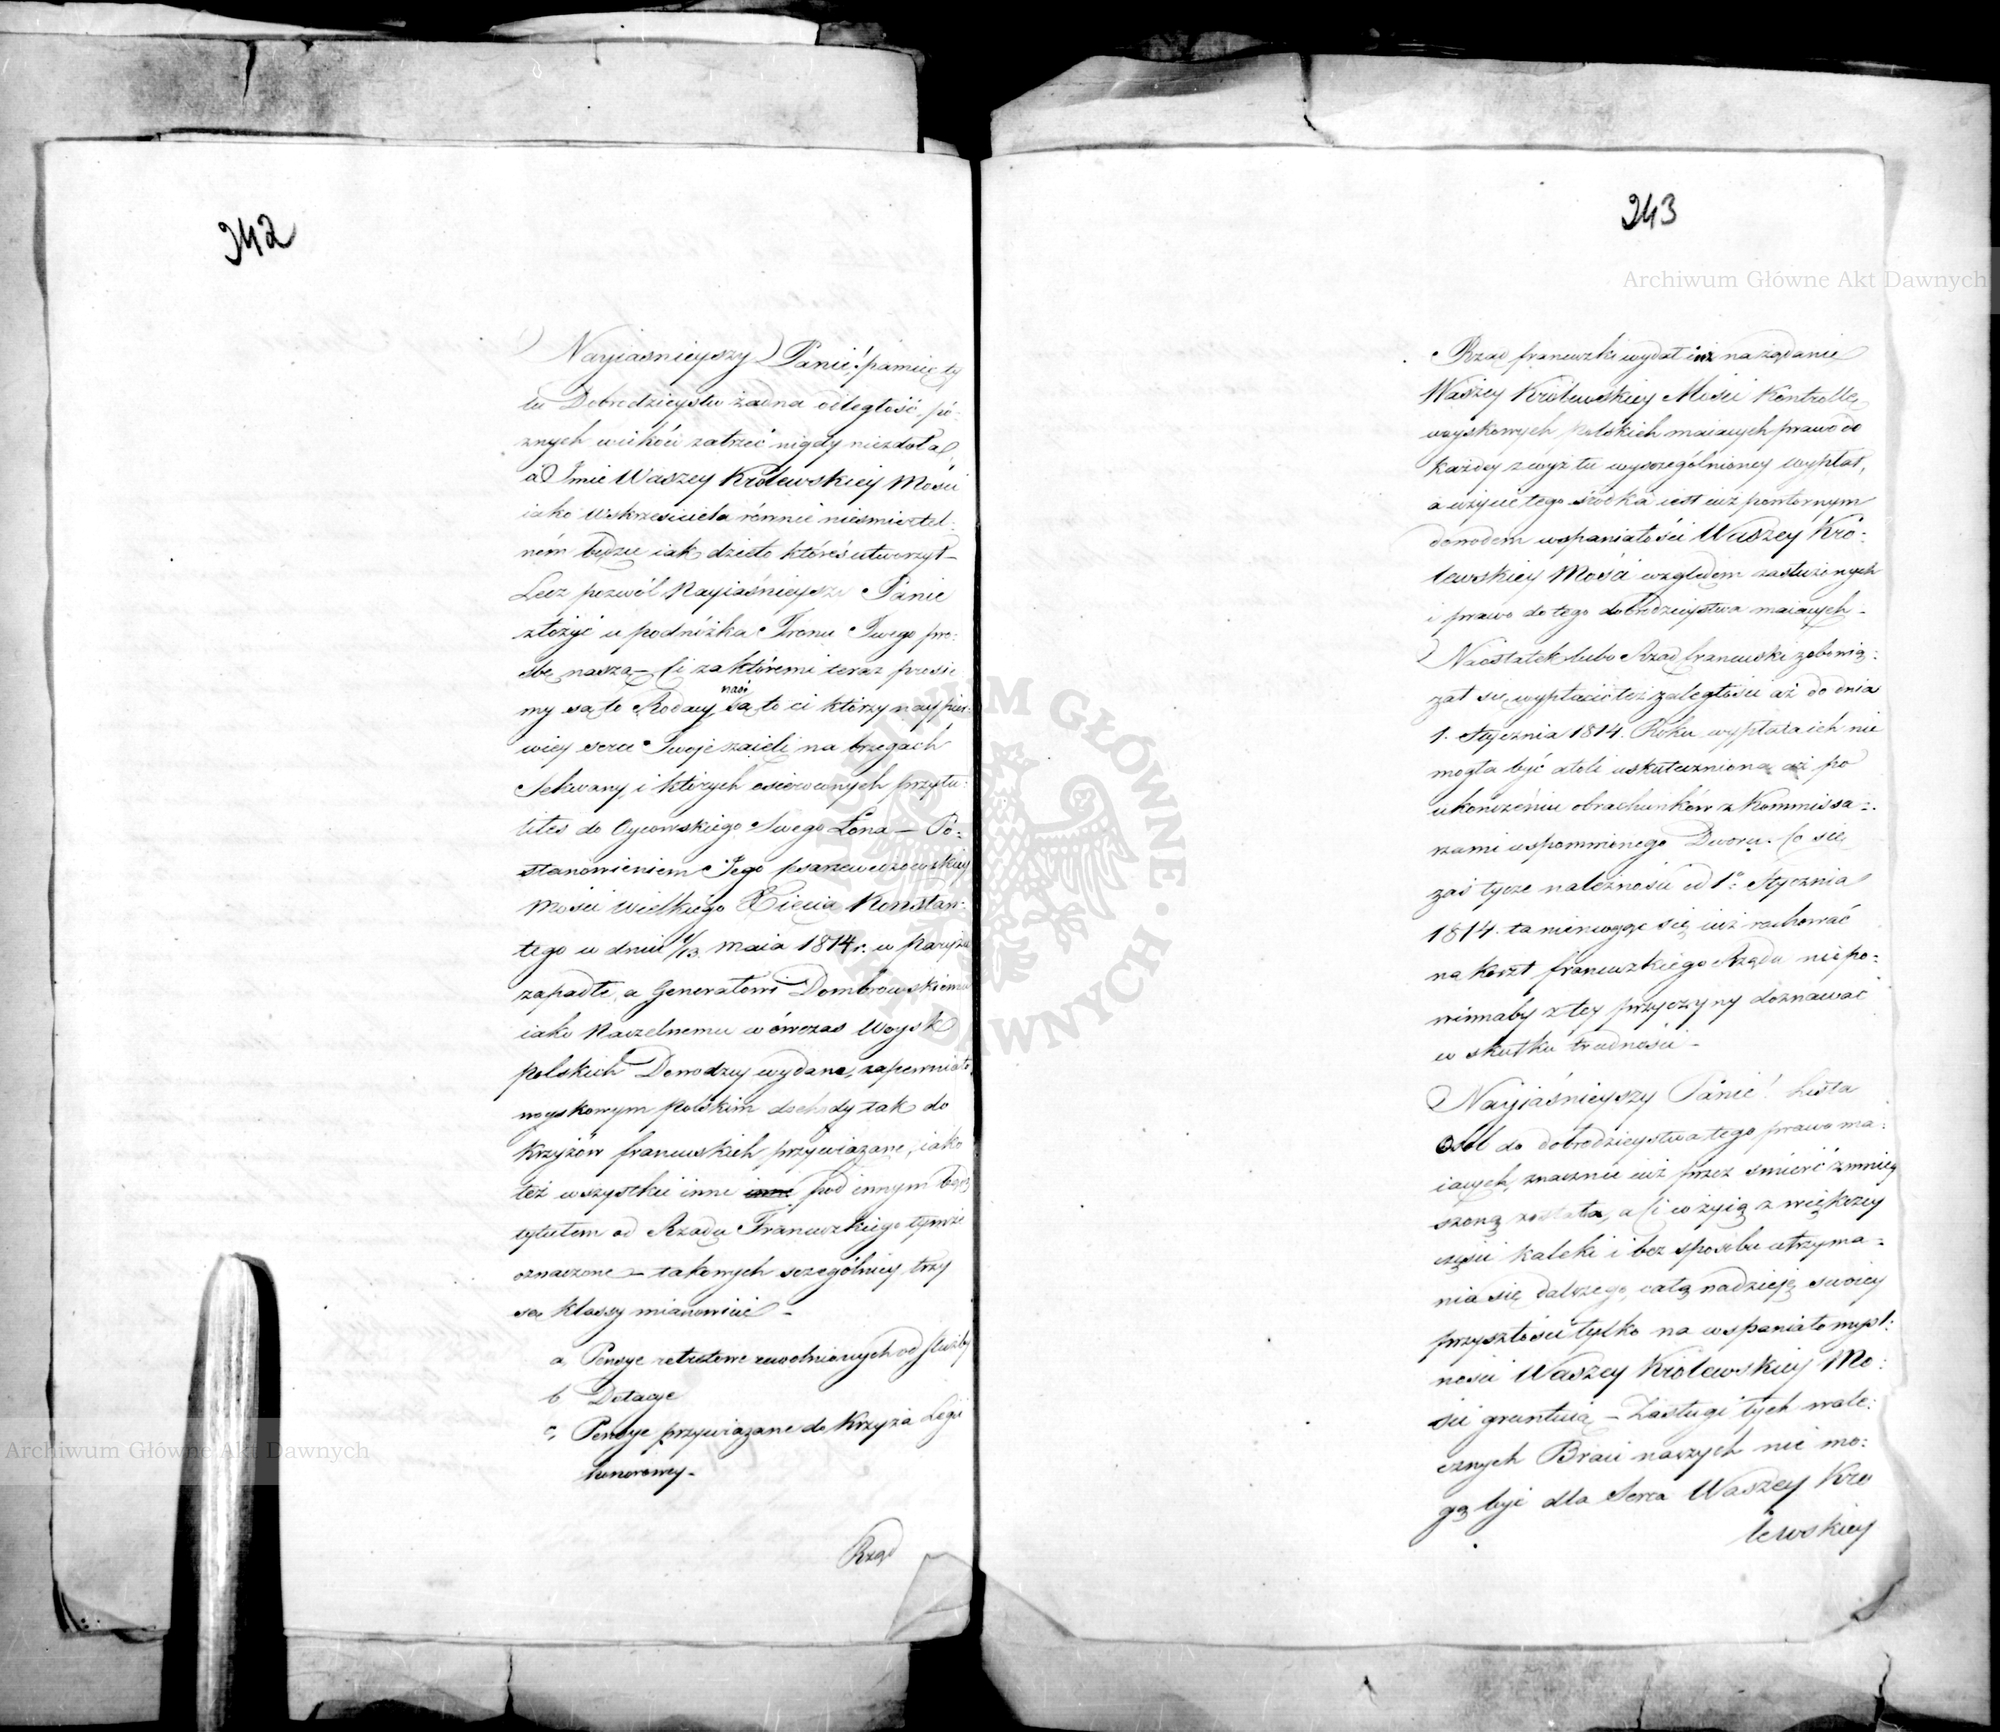 242
Nayiaśnieyszy Panie! pamięć ty
lu Dobrodzieystw żadna odległość pó-
znych wieków zatrzeć nigdy niezdoła,
a Imie Waszey Królewskiey Mości
iako Wskrzesiciela równie nieśmiertel-
ném będzie iak dzieło któreś utworzył –
Lecz pozwól Nayiaśnieyszy Panie
złożyć u podnóżka Tronu Twego pro-
śbę naszą – Ci za któremi teraz prosie
my są to Rodacy nasi, są to ci którzy naypier-
wiey serce Twoje zaieli na brzegach
Sekwany, i których osieroconych przytu-
liłeś do Oycowskiego Twego Łona – Po-
stanowieniem Jego
Mości Wielkiego Xięcia Konstan-
tego w dniu 1/13 Maia 1814 r. w Paryżu
zapadłe, a Generałowi Dombrowskiemu
iako Naczelnemu wówczas Woysk
polskich Dowódzcy wydane, zapewniało
woyskowym polskim dochody tak do
Krzyżów francuskich przywiązane, iako
też wszystkie inne pod innym bądź
tytułem od Rządu Francuzkiego tymże
oznaczone – takowych szczególniey trzy
są klassy mianowicie –
a, Pensye retretowe uwolnionych od służby
b Dotacye
c, Pensye przywiązane do Krzyża Legii
honorowey –
Rząd
243
Archiwum Główne Akt Dawnych
Rząd francuzki wydał iuż na żądanie
Waszey Królewskiey Mości Kontrollę
woyskowych polskich maiących prawo do
każdey z wyż tu wyszczególnioney wypłat,
a użycie tego środka iest iuż powtórnym
dowodem wspaniałości Waszey Kró-
lewskiey Mości względem zasłużonych
i prawo do tego dobrodzieystwa maiących –
Naostatek lubo Rząd francuski zobowią-
zał się wypłacić też zaległości aż do dnia
1. Stycznia 1814. Roku wypłata ich nie
mogła być atoli uskuteczniona aż po
ukończeniu obrachunków z Kommissa-
rzami wspomnionego Dworu. Co się
zaś tycze należności od 1o: Stycznia
1814. ta niemogąc się iuż rachować
na koszt francuzkiego Rządu niepo-
winnaby z tey przyczyny doznawać
w skutku trudności –
Nayiaśnieyszy Panie! Lista
osób do dobrodzieystwa tego prawo ma-
iących, znacznie iuż przez śmierć zmniey
szoną została, a Ci co żyią z większey
części kaleki i bez sposobu utrzyma-
nia się dalszego, całą nadzieję swoiey
przyszłości tylko na wspaniałomyśl-
ności Waszey Królewskiey Mo-
ści gruntuią – Zasługi tych wale-
cznych Braci naszych nie mo-
gą być dla Serca Waszey Kró
lewskiey
Archiwum Główne Akt Dawnych
ARCHIWUM GŁÓWNE AKT DAWNYCH